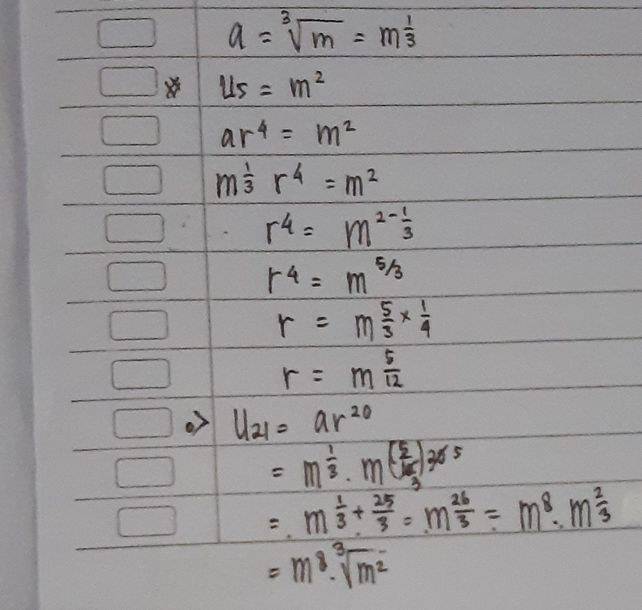 a = ∛m = m^(1/3)
* U5 = m²
ar⁴ = m²
m^(1/3) r⁴ = m²
r⁴ = m^(2-1/3)
r⁴ = m^(5/3)
r = m^(5/3 × 1/4)
r = m^(5/12)
=> U21 = ar²⁰
= m^(1/3) . m^((5/3) 5)
= m^(1/3 + 25/3) = m^(26/3) = m⁸ . m^(2/3)
= m⁸ . ∛m²